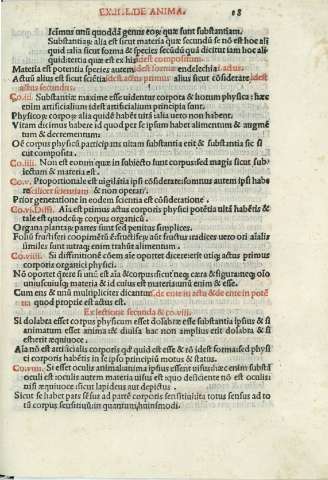 EX .II. L. DE ANIMA. 68
Icimus unū quoddā genus eoꝝ quæ sunt substantiam.
Substantiaꝝ alia est sicut materia quæ secundū se nō est hoc ali
quid alia sicut forma & species secūdū quā dicitur iam hoc ali
quid tertia quæ est ex his .i. idest compositum.
Materia est potentia species autem idest forma endelechia .i. actus.
Actuū alius est sicut sciētia idest actus primus alius sicut cōsiderare idest
actus secundus.
Co.iii. Substantiæ maxime esse uidentur corpora & horum physica: hæc
enim artificialium idest artificialium principia sunt.
Physicoꝝ corporꝝ alia quidē habēt uitā alia uero non habent.
Vitam dicimus habere id quod per se ipsum habet alimentum & augmē
tum & decrementum.
Oē corpus physicū participans uitam substantia erit & substantia sic sī
cut composita.
Co.iiii. Non est eorum quæ in subiecto sunt corpus: sed magis sicut sub
iectum & materia est.
Co.v. Proportionale est uigilātia ipsi cōsiderare: somnus autem ipsi habe
re scilicet scientiam & non operari.
Prior generatione in eodem scientia est cōsideratione.
Co.vi. Diffi. Aīa est primus actus corporis physici potētia uitā habētis &
tale est quodcūꝗ corpus organicū.
Organa plantaꝝ partes sunt sed penitus simplices.
Folia fructiferi cooperimētū
radices uero ori aīaliū
similes sunt utraꝗ enim trahūt alimentum.
Si diffinitionē cōem aīæ oportet dicere: erit utiꝗ actus primus
corporis organici physici.
Nō oportet quærere si unū est aīa & corpus: sicut neꝗ cærā & figurā: neꝗ oīo
uniuscuiusꝗ materia & id cuius est materia: unū enim & esse.
Cum ens & unū multipliciter dicantur .s. de ente in actu & de ente in potē
tia quod proprie est actus est.
Ex lectione secunda & co. viii.
Si dolabra esset corpus physicum esset dolabræ esse substantia ipsius & si
animatum esset anima & diuisa hac non amplius erit dolabra & si
esset erit æquiuoce.
Aīa nō est artificialis corporis qd quid est esse & rō idest forma sed physi
ci corporis habētis in se ipso principiū motus & status.
Co.viiii. Si esset oculus animal anima ipsius esset uisus: hæc enim substā
oculi est: oculus autem materia uisus est quo deficiente nō est oculus
nisi æquiuoce sicut lapideus aut depictus.
Sicut se habet pars sēsus ad partē corporis sensitiui: ita totus sensus ad to
tū corpus sensitiuum in quantum huiusmodi.